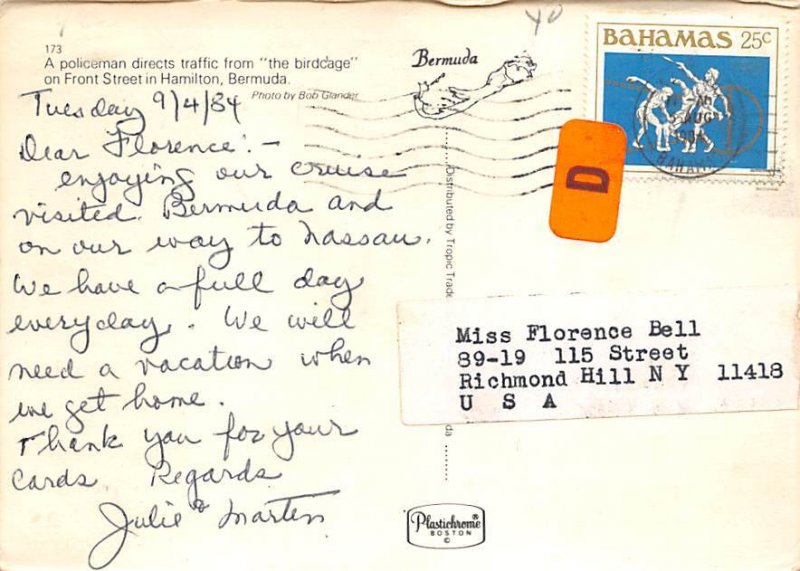 173
A policeman directs traffic from "the birdcage"
on Front Street in Hamilton, Bermuda.
Photo by Bob Glander
Tuesday 9/4/84
Dear Florence:-
enjoying our cruise
visited Bermuda and
on our way to Nassau.
We have a full day
everyday. We will
need a vacation when
we get home.
Thank you for your
cards. Regards
Julie & Marten
Bermuda
Distributed by Tropic Trade
da
YD
BAHAMAS 25c
AUG
BAHAM
D
Miss Florence Bell
89-19 115 Street
Richmond Hill N Y 11418
U S A
Plastichrome®
BOSTON
©